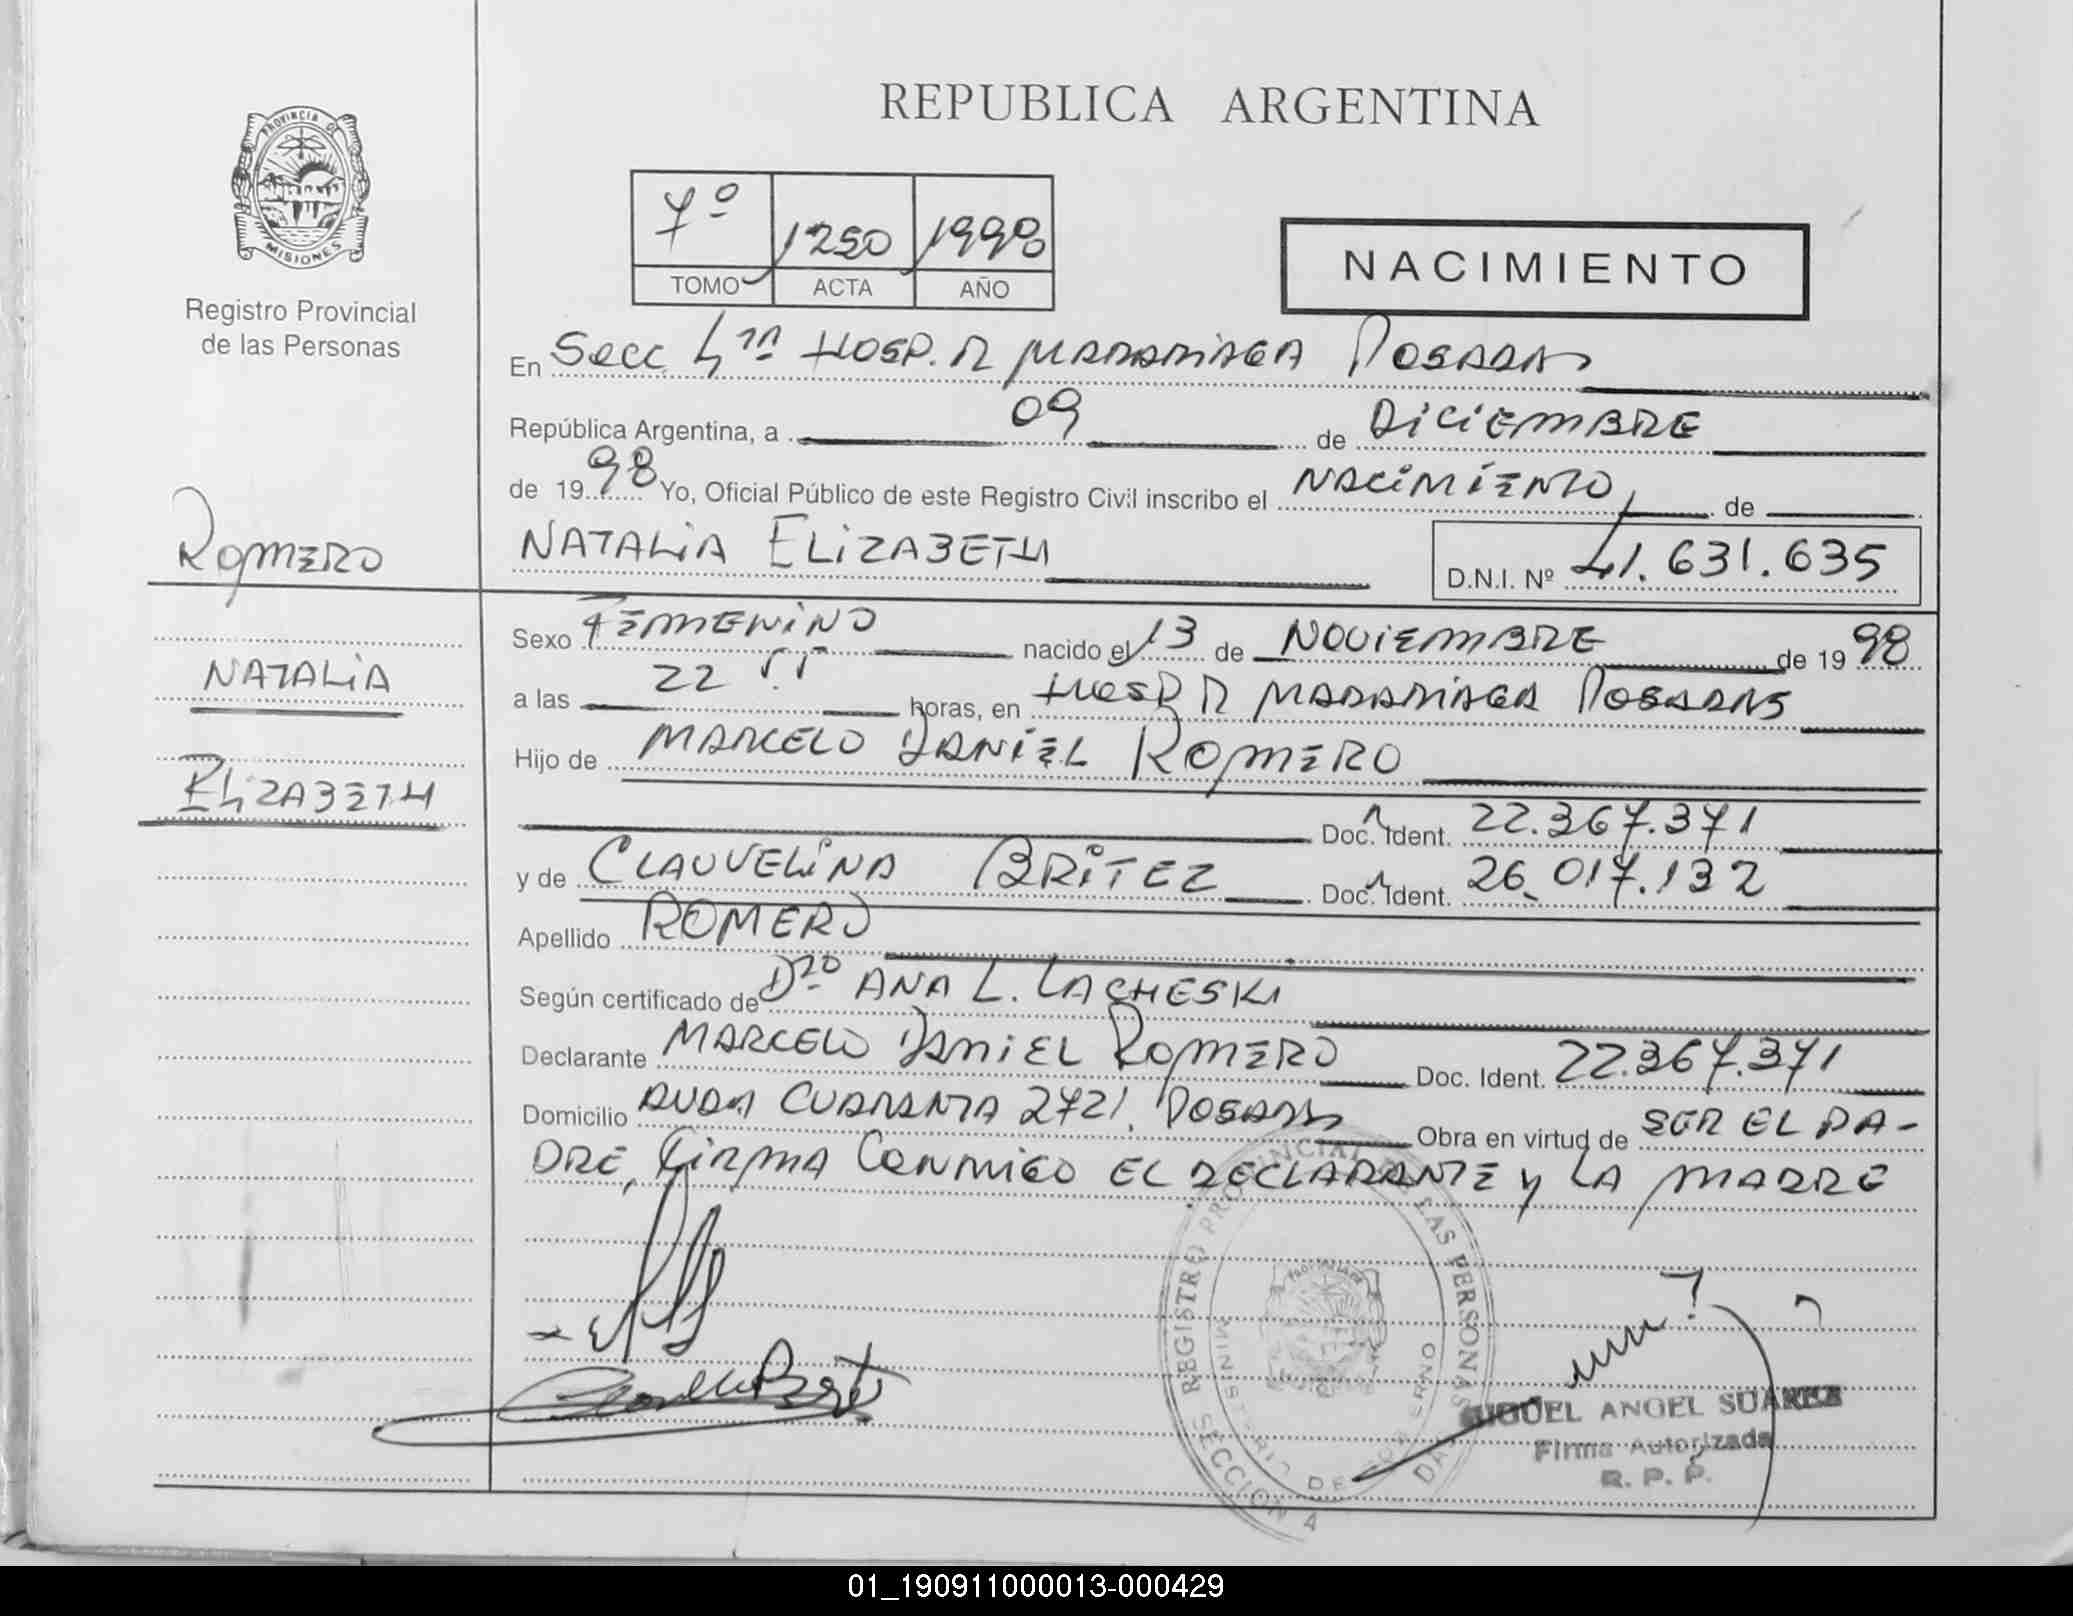 REPUBLICA ARGENTINA
PROVINCIA DE
MISIONES
Registro Provincial
de las Personas
7º 1250 1998
TOMO ACTA AÑO
NACIMIENTO
En Secc 4ta HOSP. R MADARIAGA POSADAS
República Argentina, a 09 de DICIEMBRE
de 1998 Yo, Oficial Público de este Registro Civil inscribo el NACIMIENTO de
NATALIA ELIZABETH
D.N.I. Nº 41.631.635
ROMERO
NATALIA
ELIZABETH
Sexo FEMENINO nacido el 13 de NOVIEMBRE de 1998
a las 22 horas, en HOSP R MADARIAGA POSADAS
Hijo de MARCELO DANIEL ROMERO
Doc. Ident. 22.367.371
y de CLAUVELINA BRITEZ Doc. Ident. 26.017.132
Apellido ROMERO
Según certificado de ANA L. LACHESKI
Declarante MARCELO DANIEL ROMERO Doc. Ident. 22.367.371
Domicilio AVDA CUARENTA 2721. POSADAS Obra en virtud de SER EL PA-
DRE, FIRMA CONMIGO EL DECLARANTE y LA MADRE
REGISTRO PROVINCIAL DE LAS PERSONAS
MINISTERIO DE GOBIERNO
SECCION 4
MIGUEL ANGEL SUAREZ
Firma Autorizada
R. P. P.
01_190911000013-000429